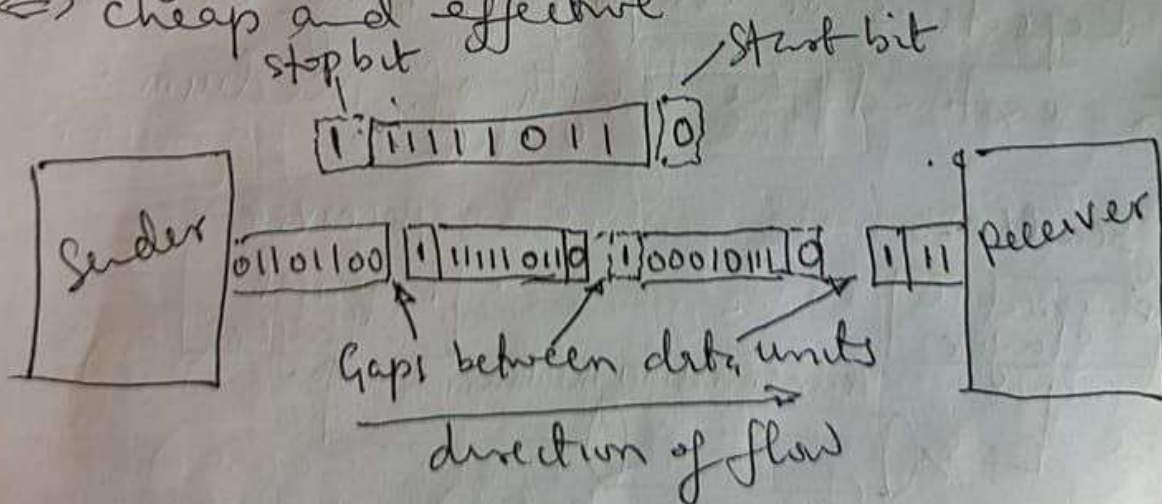 =) cheap and effective
stop bit
Start bit
1 11111011 0
Sender
01101100 1 11111011 0 1 00010111 0 1 11
Receiver
Gaps between data units
direction of flow